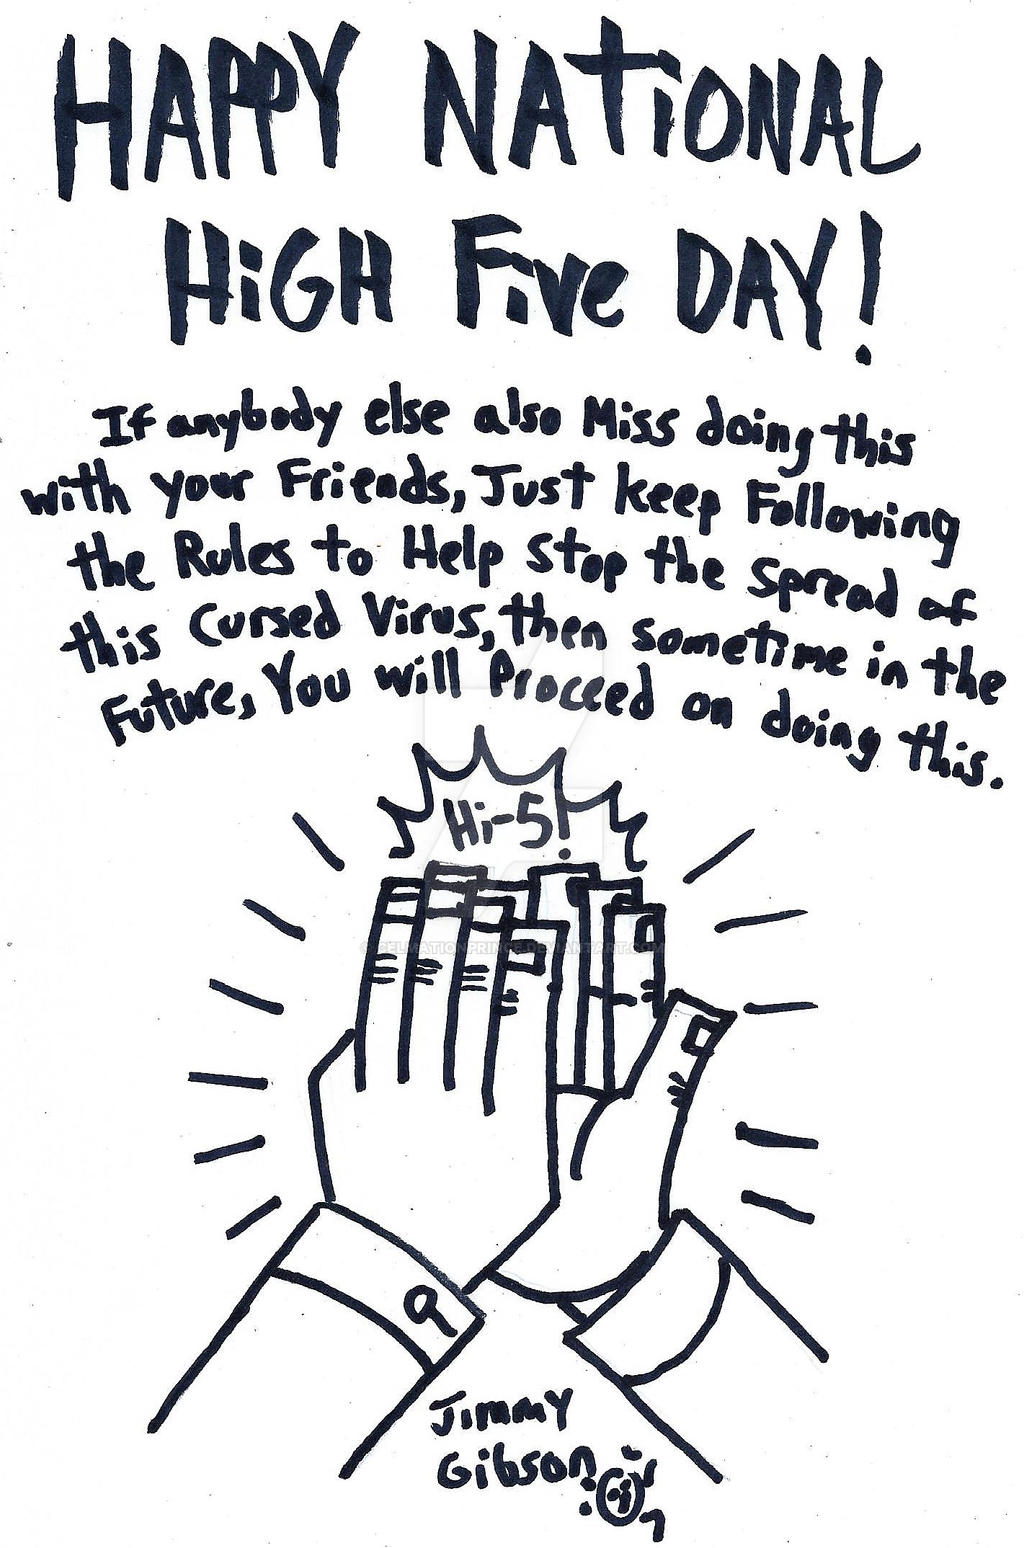 HAPPY NATiONAL
HiGH Five DAY!
If anybody else also Miss doing this
with your Friends, Just keep Following
the Rules to Help Stop the Spread of
this Cursed Virus, then sometime in the
Future, You will Proceed on doing this.
Hi-5!
© CELMATIONPRINCE.DEVIANTART.COM
Jimmy
Gibson